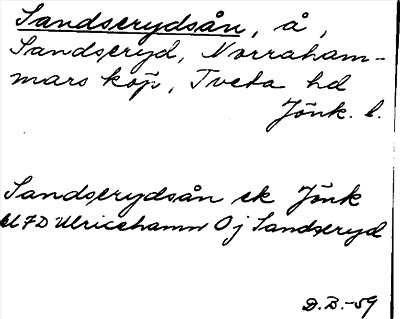 Sandserydsån, å,
Sandseryd, Norraham-
mars köp, Tveta hd
Jönk. l.
Sandserydsån ek Jönk
UFD Ulricehamn Oj Sandseryd
D.B.-59